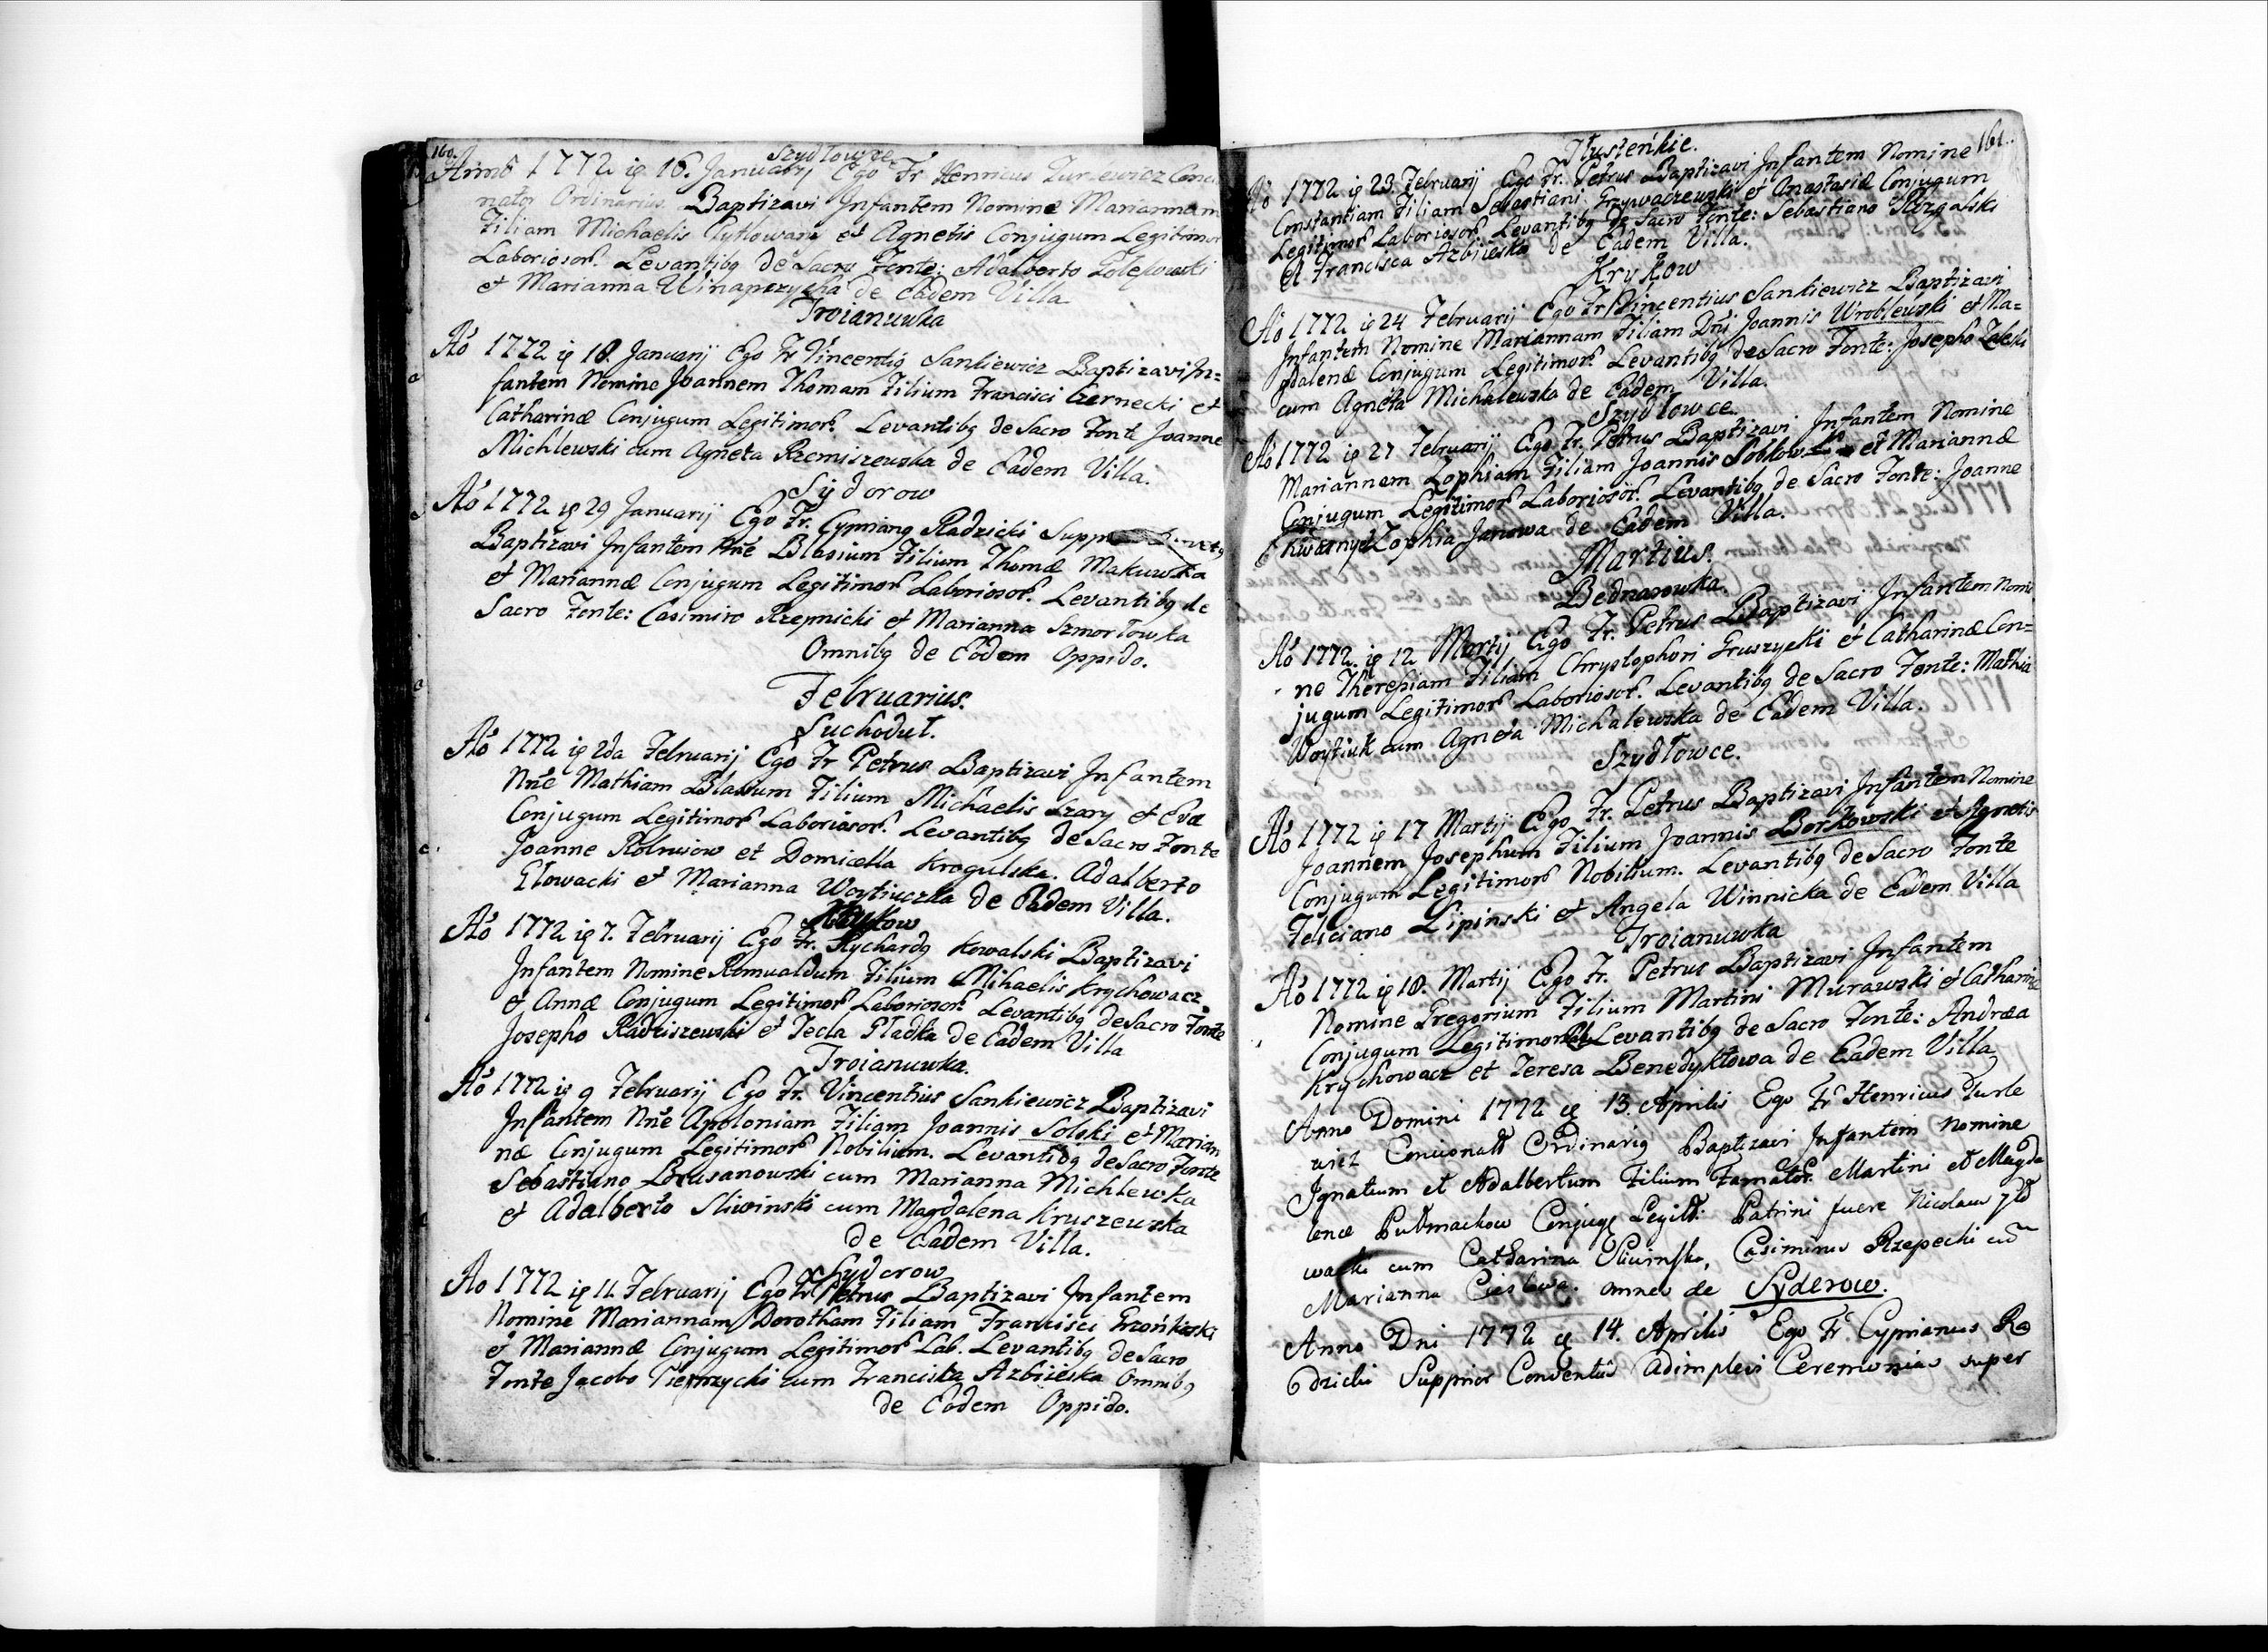 160.
Szydłowce
Anno 1772 ig 16. January Ego Fr Henricus Turlewicz Conci
nator Ordinarius Baptizavi Infantem Nomine Mariannam
Filiam Michaelis et Agnetis Conjugum Legitimor
Laboriosor. Levantibg de Sacro Fonte: Adalberto
et Marianna de Eadem Villa
Troianuwka
Aō 1772 ig 18. Januarij Ego Fr Vincentig Sankiewicz Baptizavi In=
fantem Nomine Joannem Thomam Filium Francisci Czernecki et
Catharinæ Conjugum Legitimor. Levantibg de Sacro Fonte Joanne
Michlewski cum Agneta Rzemiszewska de Eadem Villa.
Sydorow
Aō 1772 ig 29 Januarij Ego Fr. Cypriang Radzicki
Baptizavi Infantem Nne Blasium Filium Thomæ Makuwka
et Mariannæ Conjugum Legitimor Laboriosor. Levantibg de
Sacro Fonte: Casimiro Rzepnicki et Marianna Szmorłowska
Omnibg de Eodem Oppido.
Februarius.
Suchoduł.
Aō 1772 ig 2da Februarij Ego Fr Petrus Baptizavi Infantem
Nne Mathiam Blasium Filium Michaelis Szary et Evæ
Conjugum Legitimor Laboriosor. Levantibg de Sacro Fonte
Joanne et Domicella Krogulska. Adalberto
Głowacki et Marianna Woytiuczka de Eadem Villa.
Aō 1772 ig 7. Februarij Ego Fr. Rychardg Kowalski Baptizavi
Infantem Nomine Romualdum Filium Mihaelis Krychowacz
et Annæ Conjugum Legitimor Laboriosor. Levantibg de Sacro Fonte
Josepho Radziszewski et Tecla Gładka de Eadem Villa
Troianuwka.
Aō 1772 ig 9 Februarij Ego Fr. Vincentius Sankiewicz Baptizavi
Infantem Nne Apoloniam Filiam Joannis Solski et Marian
næ Conjugum Legitimor Nobilium. Levantibg de Sacro Fonte
Sebastiano Brusanowski cum Marianna Michlewka
et Adalberto Sliwinski cum Magdalena Kruszewska
de Eadem Villa.
Sydorow
Ao 1772 ig 11. Februarij Ego Fr Petrus Baptizavi Infantem
Nomine Mariannam Dorotham Filiam Francisci
et Mariannæ Conjugum Legitimor Lab. Levantibg de Sacro
Fonte Jacobo cum Franciska Azbijeska Omnibg
de Eodem Oppido.
161.
Tłusteńkie.
Aō 1772 ig 23. Februarij Ego Fr. Petrus Baptizavi Infantem Nomine
Constantiam Filiam Sebastiani Grzywaczewski et Anastasiæ Conjugum
Legitimor Laboriosor Levantibg de Sacro Fonte: Sebastiano
et Francisca Azbijeska de Eadem Villa.
Krykow
Aō 1772 ig 24 Februarij Ego Fr Vincentius Sankiewicz Baptizavi
Infantem Nomine Mariannam Filiam Dni Joannis Wroblewski et Ma=
gdalenæ Conjugum Legitimor. Levantibg de Sacro Fonte: Josepho Zaleski
cum Agneta Michalewska de Eadem Villa.
Szydłowce
Aō 1772 ig 27 Februarij Ego Fr. Petrus Baptizavi Infantem Nomine
Mariannam Zophiam Filiam Joannis et Mariannæ
Conjugum Legitimor Laboriosor. Levantibg de Sacro Fonte: Joanne
Zophia Janowa de Eadem Villa.
Martius.
Bednarowka.
Aō 1772. ig 12 Martij Ego Fr. Petrus Baptizavi Infantem Nomi
ne Theresiam Filiam Chrystophori Gruszycki et Catharinæ Con=
jugum Legitimor Laboriosor. Levantibg de Sacro Fonte: Mathia
Woytiuk cum Agneta Michalewska de Eadem Villa.
Szydłowce.
Aō 1772 ig 17 Martij Ego Fr. Petrus Baptizavi Infantem Nomine
Joannem Josephum Filium Joannis Borkowski et Agnetis
Conjugum Legitimor Nobilium. Levantibg de Sacro Fonte
Feliciano Lipinski et Angela Winnicka de Eadem Villa
Troianuwka
Aō 1772 ig 18. Martij Ego Fr. Petrus Baptizavi Infantem
Nomine Gregorium Filium Martini Murawski et Catharinæ
Conjugum Legitimor Levantibg de Sacro Fonte: Andræa
Krychowacz et Teresa Benedyktowa de Eadem Villa
Anno Domini 1772 ig 13. Aprilis Ego Fr Henricus Turle
wicz Ordinarig Baptizavi Infantem Nomine
Ignatium et Adalbertum Filium Famator. Martini et Magda
lenæ Patrini fuere Nicolaus
cum Catharina Sliwinska, Casimirus Rzepecki cu
Marianna omnes de Syderow.
Anno Dni 1772 ig 14. Aprilis Ego Fr Cyprianus Ra
dzicki Supprior Conventus adimplevi Ceremonias super